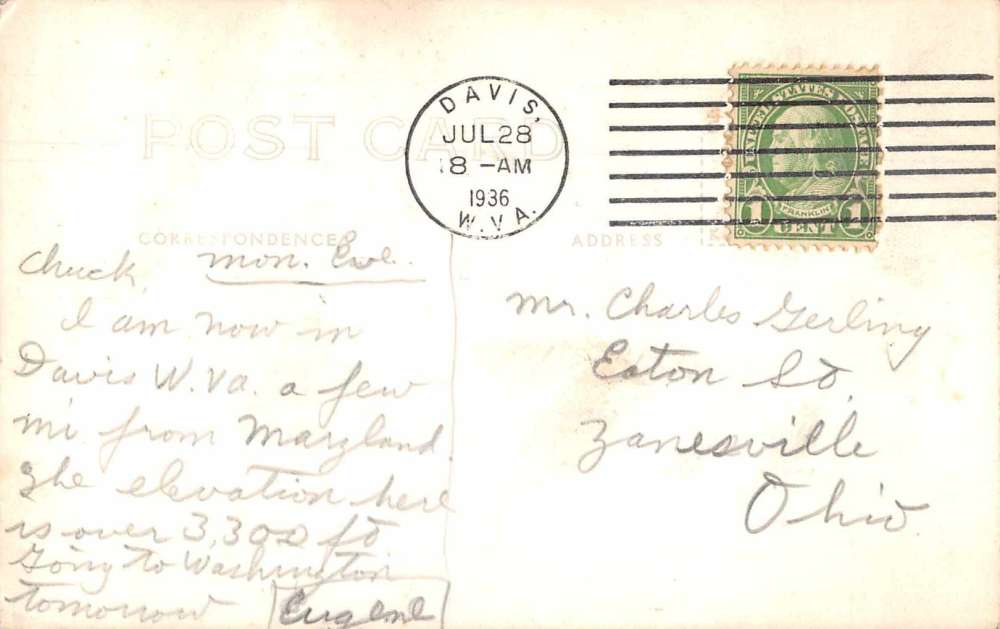 POST CARD
DAVIS,
JUL 28
8 -AM
1936
W.VA.
UNITED STATES POSTAGE
FRANKLIN
1 CENT 1
CORRESPONDENCE
ADDRESS
Chuck, Mon. Eve.
I am now in
Davis W.Va. a few
mi from Maryland.
The elevation here
is over 3,300 ft
Going to Washington
tomorrow Eugene
Mr. Charles Gerling
Eaton St.
Zanesville
Ohio